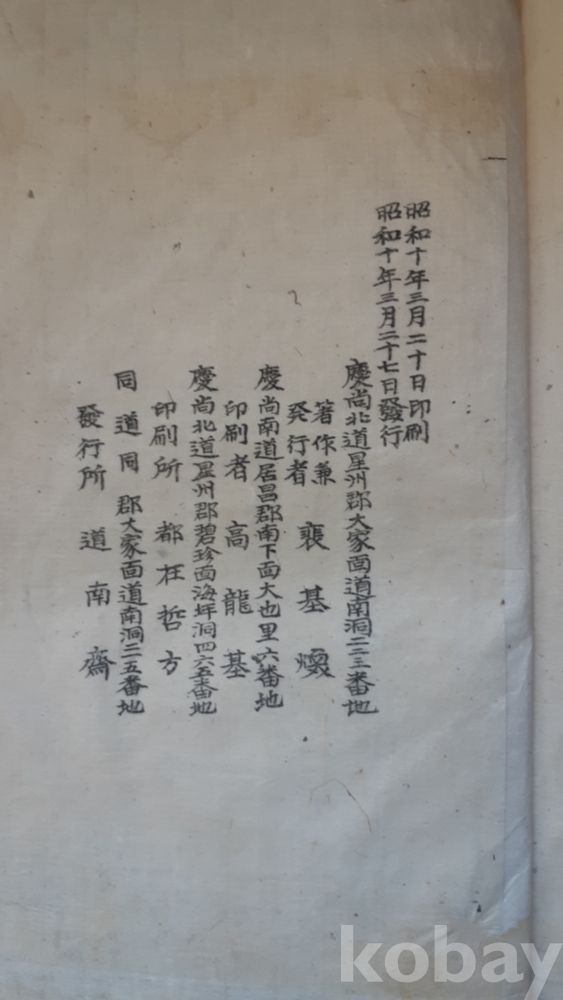 昭和十年三月二十日印刷
昭和十年三月二十七日發行
慶尚北道星州郡大家面道南洞二二三番地
著作兼
發行者 裵基
慶尚南道居昌郡南下面大也里六番地
印刷者 高龍基
慶尚北道星州郡碧珍面海坪洞四六五番地
印刷所 都枉哲方
同道同郡大家面道南洞二五番地
發行所 道南齋
kobay